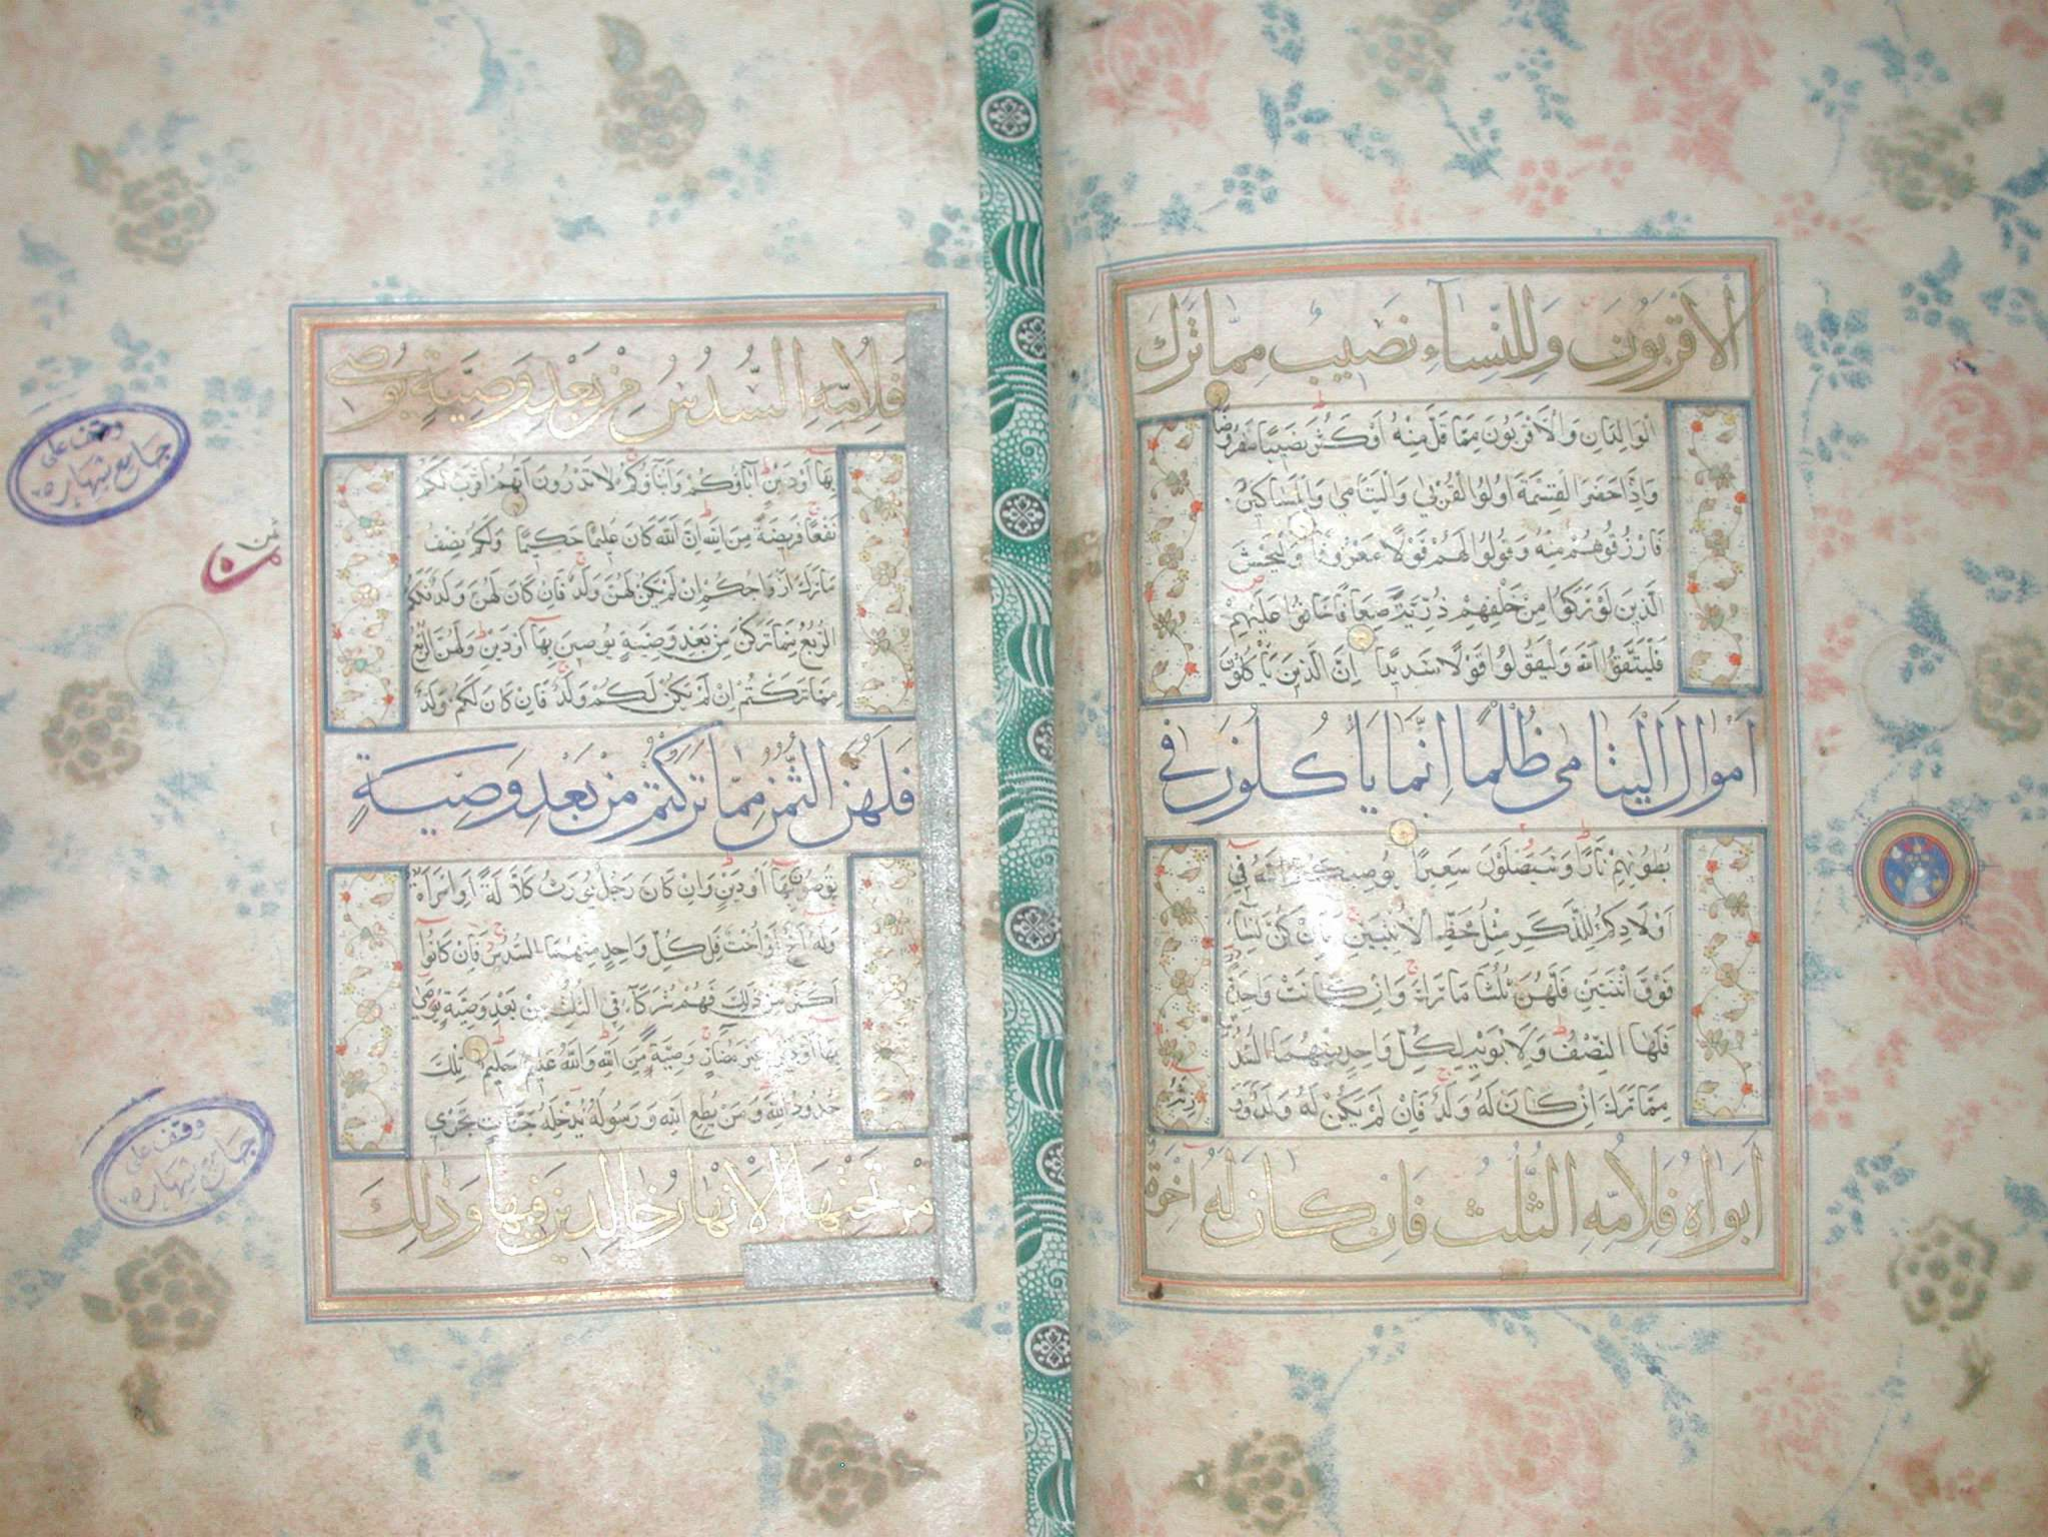 الاقربون وللنساء نصيب مما ترك
الوالدان والاقربون مما قل منه او كثر نصيبا مفروضا
واذا حضر القسمة اولوا القربى واليتامى والمساكين
فارزقوهم منه وقولوا لهم قولا معروفا وليخش
الذين لو تركوا من خلفهم ذرية ضعافا خافوا عليهم
فليتقوا الله وليقولوا قولا سديدا ان الذين ياكلون
اموال اليتامى ظلما انما ياكلون في
بطونهم نارا وسيصلون سعيرا يوصيكم الله في
اولادكم للذكر مثل حظ الانثيين فان كن نساء
فوق اثنتين فلهن ثلثا ما ترك وان كانت واحدة
فلها النصف ولابويه لكل واحد منهما السدس
مما ترك ان كان له ولد فان لم يكن له ولد وورثه
ابواه فلامه الثلث فان كان له اخوة
فلامه السدس من بعد وصية يوصي
بها او دين اباؤكم وابناؤكم لا تدرون ايهم اقرب لكم
نفعا فريضة من الله ان الله كان عليما حكيما ولكم نصف
ما ترك ازواجكم ان لم يكن لهن ولد فان كان لهن ولد فلكم
الربع مما تركن من بعد وصية يوصين بها او دين ولهن الربع
مما تركتم ان لم يكن لكم ولد فان كان لكم ولد
فلهن الثمن مما تركتم من بعد وصية
توصون بها او دين وان كان رجل يورث كلالة او امراة
وله اخ او اخت فلكل واحد منهما السدس فان كانوا
اكثر من ذلك فهم شركاء في الثلث من بعد وصية يوصى
بها او دين غير مضار وصية من الله والله عليم حليم تلك
حدود الله ومن يطع الله ورسوله يدخله جنات تجري
من تحتها الانهار خالدين فيها وذلك
وقف على
جامع شهاره
ثمن
وقف على
جامع شهاره